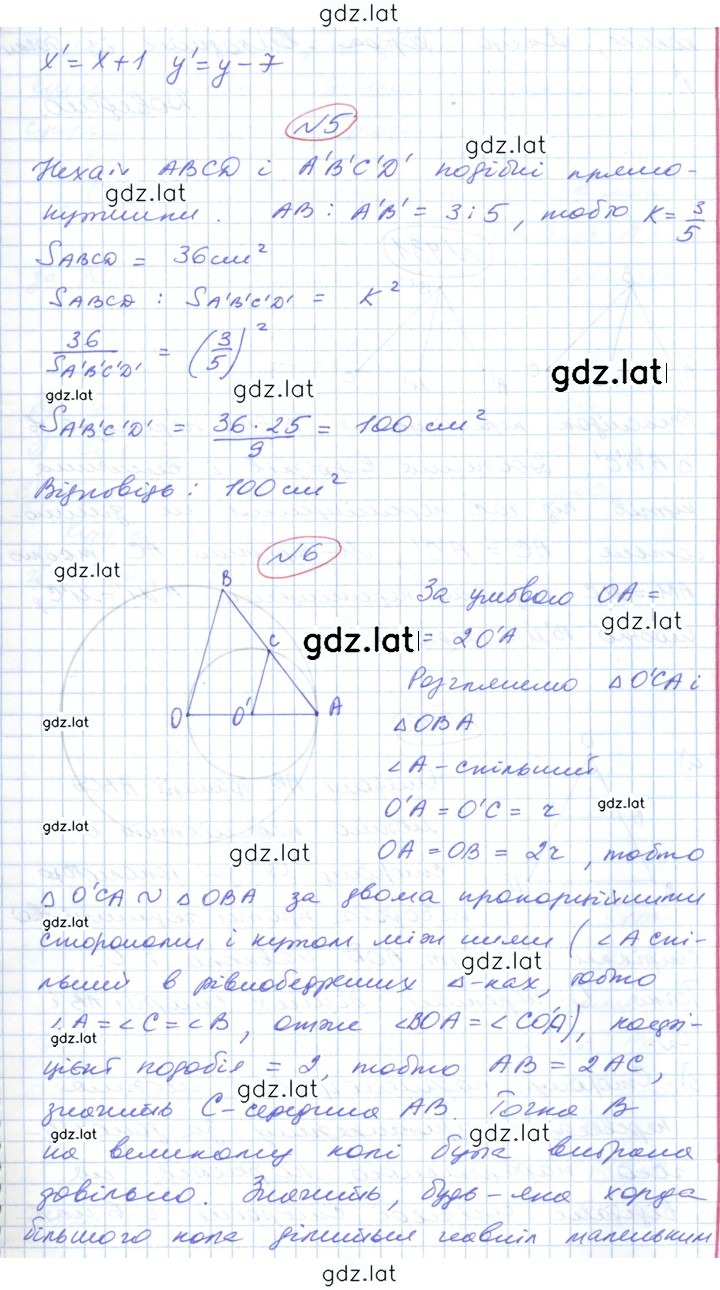 gdz.lat
x' = x + 1  y' = y - 7
N5
gdz.lat
Нехай ABCD і A'B'C'D' подібні прямо-
gdz.lat
кутники. AB : A'B' = 3 : 5, тобто K = 3/5
S_ABCD = 36 см²
S_ABCD : S_A'B'C'D' = K²
36/S_A'B'C'D' = (3/5)²
gdz.lat
gdz.lat
gdz.lat
S_A'B'C'D' = 36 · 25/9 = 100 см²
Відповідь: 100 см²
N6
gdz.lat
B
За умовою OA =
gdz.lat
C
gdz.lat
= 2O'A
Розглянемо △O'CA і
O O' A
gdz.lat
△OBA
∠A - спільний
O'A = O'C = r
gdz.lat
gdz.lat
gdz.lat
OA = OB = 2r, тобто
△O'CA ~ △OBA за двома пропорційними
gdz.lat
сторонами і кутом між ними (∠A спі-
gdz.lat
льний в рівнобедрених △-ках, тобто
∠A = ∠C = ∠B, отже ∠BOA = ∠CO'A), коефі-
gdz.lat
цієнт подобія = 2, тобто AB = 2AC,
gdz.lat
значить C - середина AB. Точка B
gdz.lat
gdz.lat
на великому колі була вибрана
довільно. Значить, будь-яка хорда
більшого кола ділиться навпіл маленьким
gdz.lat